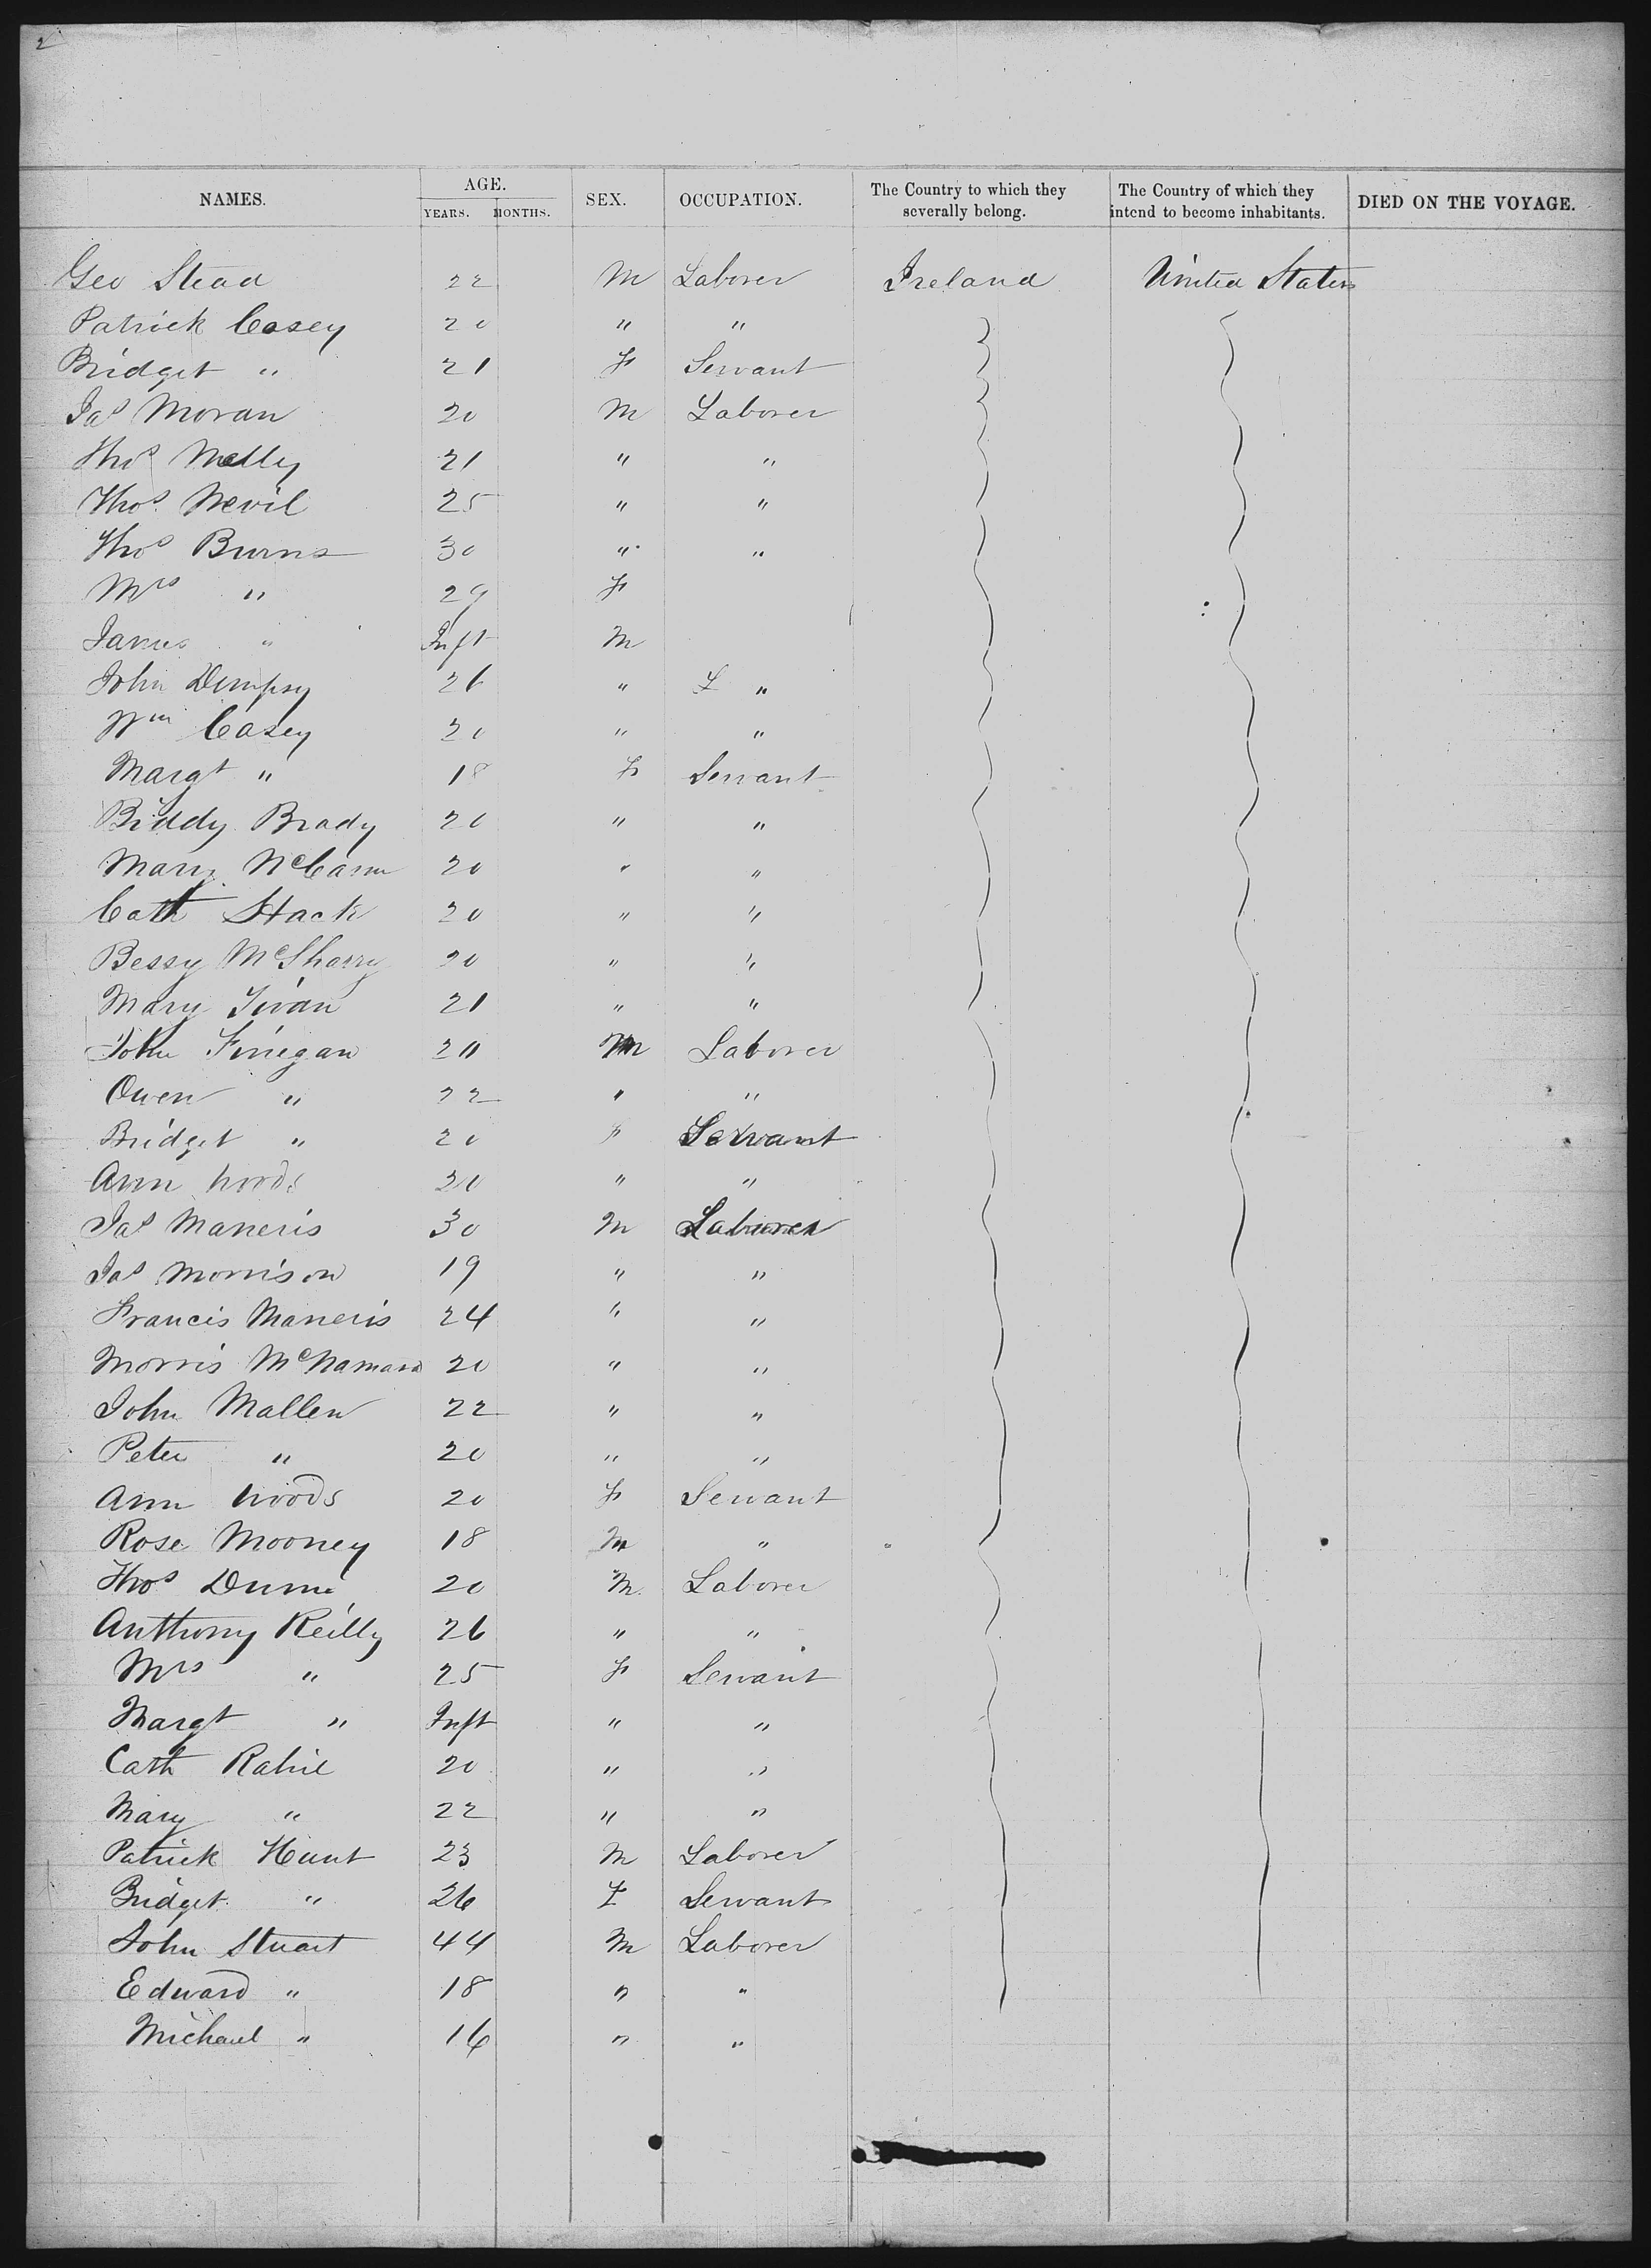 2
NAMES. AGE. SEX. OCCUPATION. The Country to which they severally belong. The Country of which they intend to become inhabitants. DIED ON THE VOYAGE.
YEARS. MONTHS.
Geo Stead 22 M Laborer Ireland United States
Patrick Casey 20 " "
Bridget " 21 F Servant
Jas Moran 20 M Laborer
Thos Melly 21 " "
Thos Nevil 25 " "
Thos Burns 30 " "
Mrs " 29 F
James " Inft M
John Dempsy 26 " L "
Wm Casey 20 " "
Margt " 18 F Servant
Biddy Brady 20 " "
Mary McCann 20 " "
Cath Stack 20 " "
Bessy McSharry 20 " "
Mary 21 " "
John Finegan 20 M Laborer
Owen " 22 " "
Bridget " 20 F Servant
Ann Woods 20 " "
Jas Maneris 30 M Laborer
Jas Morrison 19 " "
Francis Maneris 24 " "
Morris McNamara 20 " "
John Mallen 22 " "
Peter " 20 " "
Ann Woods 20 F Servant
Rose Mooney 18 M "
Thos Dunn 20 M Laborer
Anthony Reilly 26 " "
Mrs " 25 F Servant
Margt " Inft " "
Cath 20 " "
Mary " 22 " "
Patrick Hunt 23 M Laborer
Bridget " 26 F Servant
John Stuart 44 M Laborer
Edward " 18 " "
Michael " 16 " "